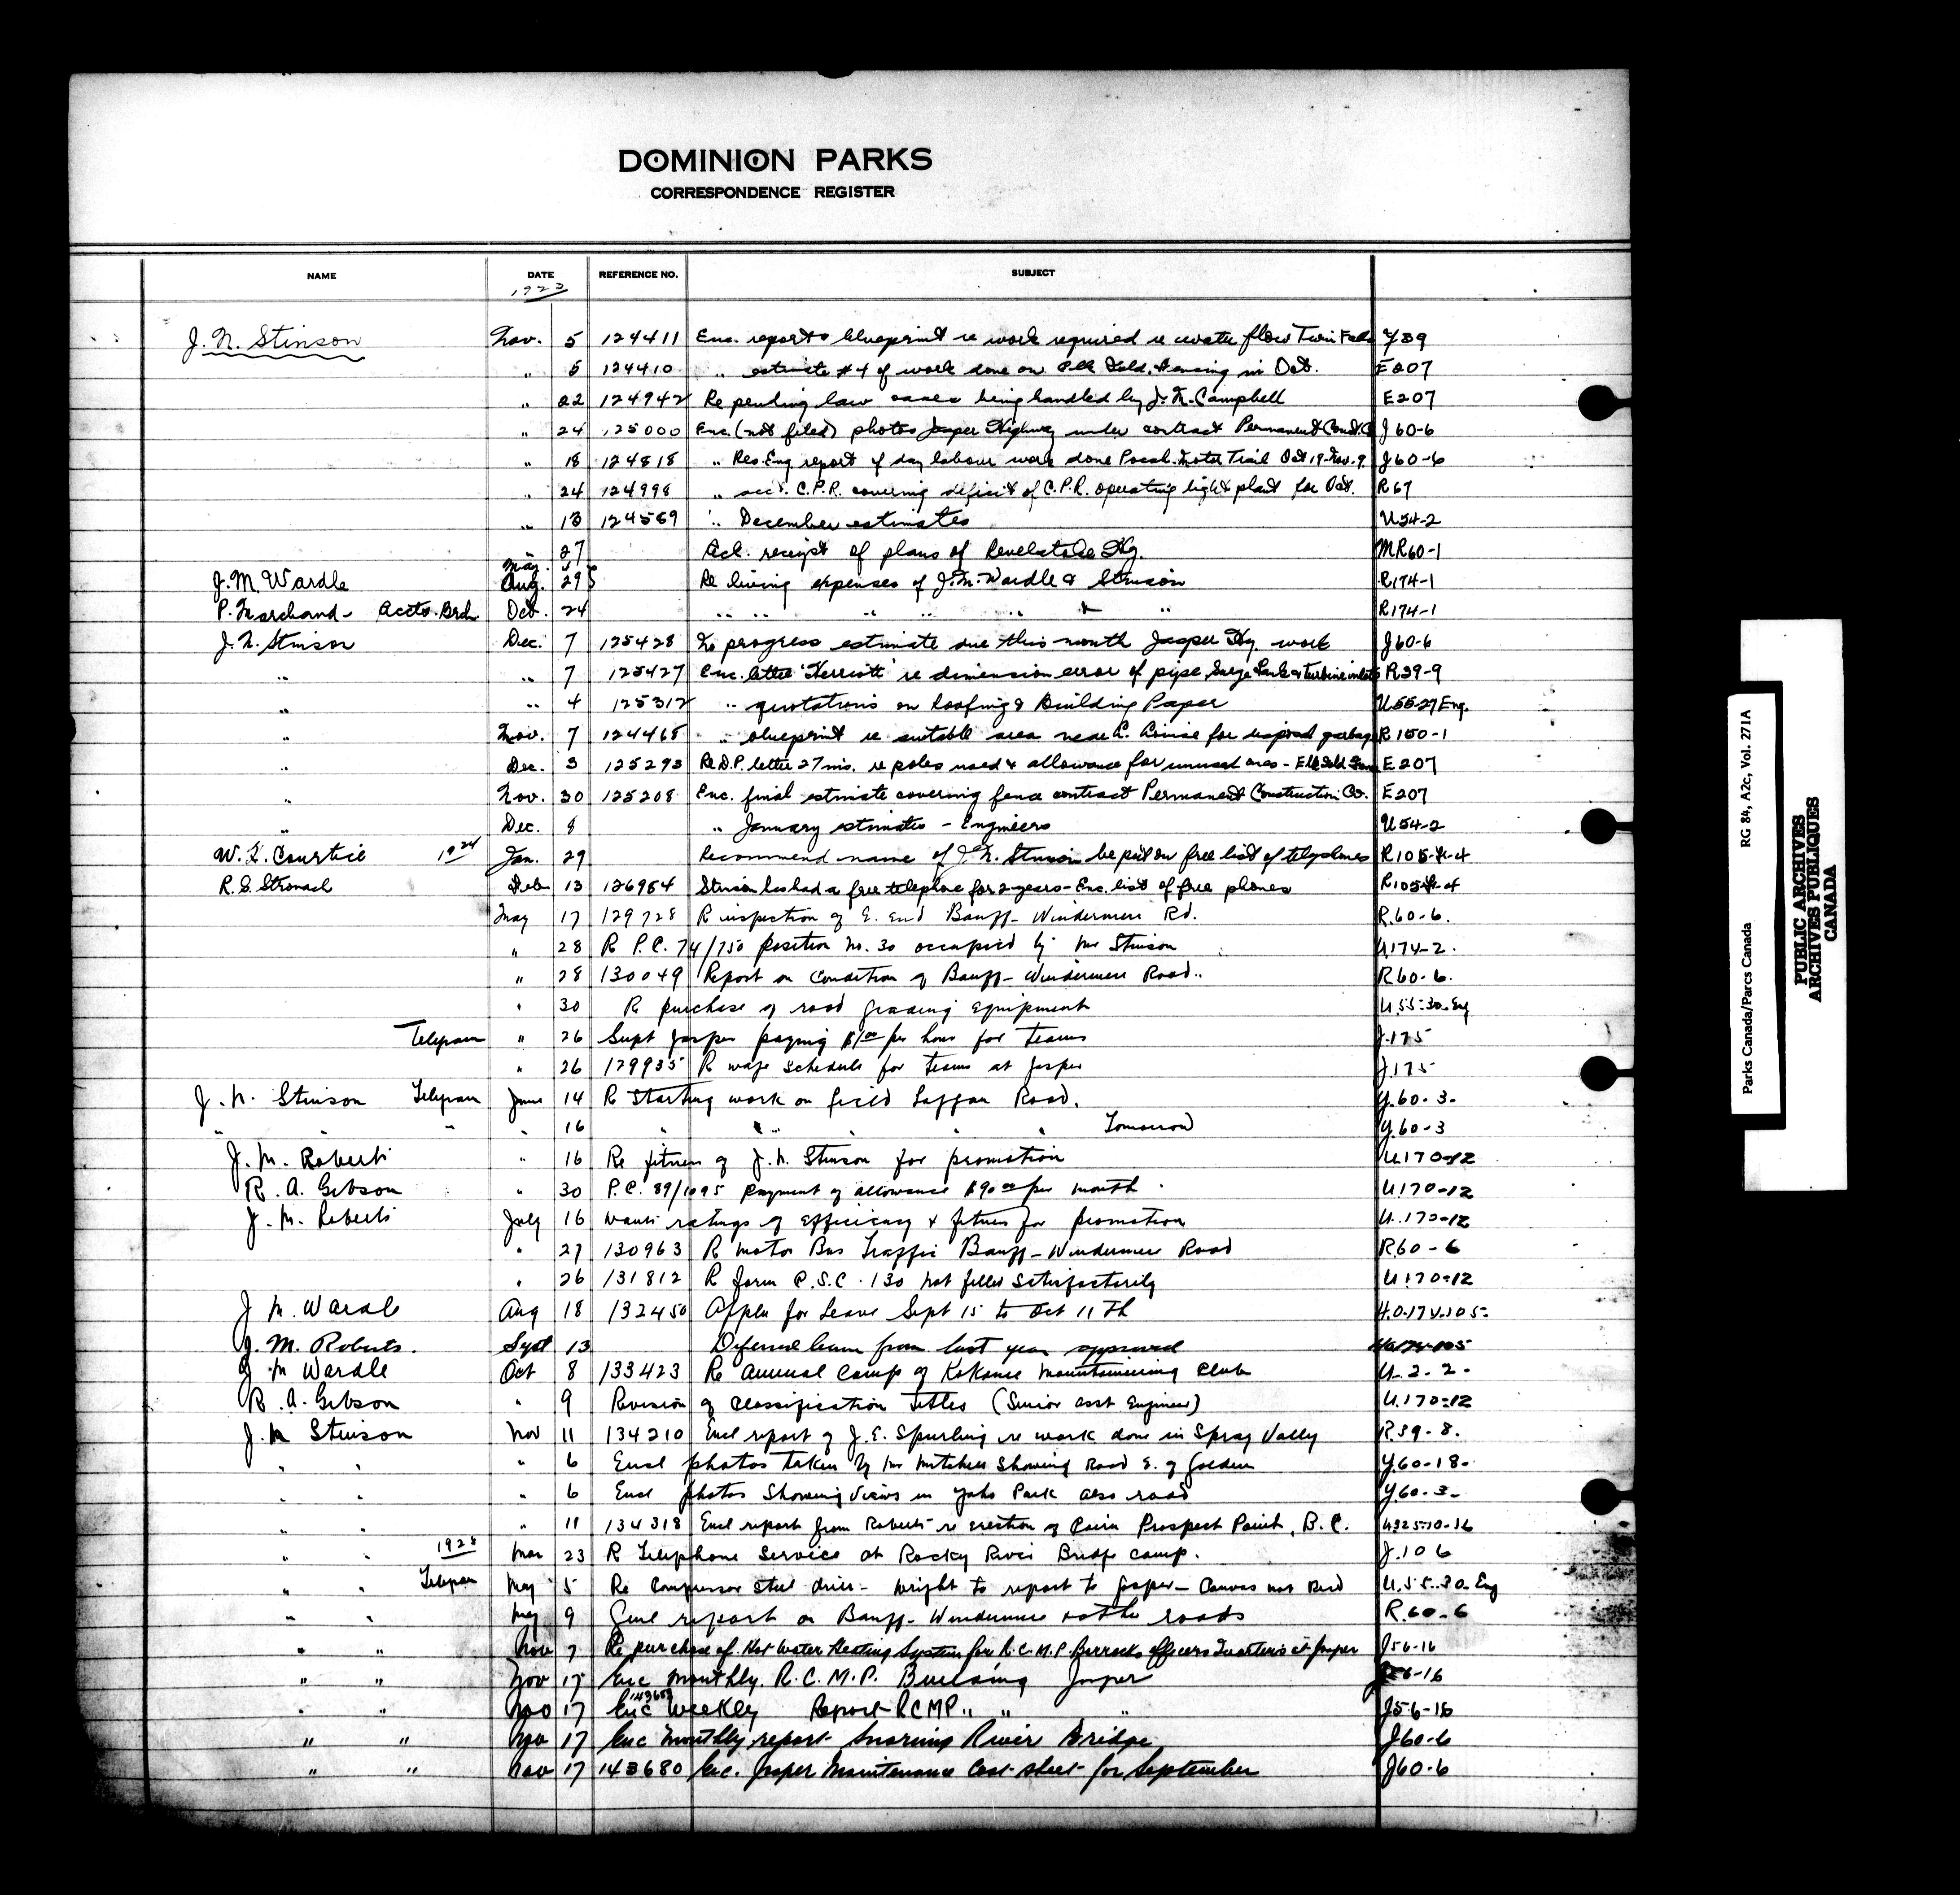 DOMINION PARKS
CORRESPONDENCE REGISTER
NAME DATE REFERENCE NO. SUBJECT
1923
J. N. Stinson Nov. 5 124411 Enc. report & blueprint re work required re water flow Twin Falls Y39
" 5 124410 " estimate #4 of work done on Elk Isld. Fencing in Oct. E207
" 22 124942 Re pending law cases being handled by J. N. Campbell E207
" 24 125000 Enc. (not filed) photos Jasper Highway under contract Permanent Const. C J60-6
" 18 124818 " Res. Eng report of day labour work done Pocah. Motor Trail Oct 19-Nov. 9 J60-6
" 24 124998 " acct. C.P.R. covering deficit of C.P.R. operating light plant for Oct. R67
" 13 124569 " December estimates U54-2
" 27 Ack. receipt of plans of Revelstoke Hy. MR60-1
May.
J. M. Wardle Aug. 29 Re living expenses of J. M. Wardle & Stinson R174-1
P. Marchand - Accts. Brch Oct. 24 " " " " " & " R174-1
J. N. Stinson Dec. 7 125428 No progress estimate due this month Jasper Hy. work J60-6
" " 7 125427 Enc. letter 'Herriott' re dimension error of pipe, Surge Tank & turbine inlets R39-9
" " 4 125312 " quotations on Roofing & Building Paper U55-27 Eng.
" Nov. 7 124468 " blueprint re suitable area near L. Louise for disposal garbage R150-1
" Dec. 3 125293 Re D.P. letter 27 ins. re poles used & allowance for unused ones - Elk Isld E207
" Nov. 30 125208 Enc. final estimate covering fence contract Permanent Construction Co. E207
" Dec. 8 " January estimates - Engineers U54-2
W. H. Courtice 1924 Jan. 29 Recommend name of J. N. Stinson be put on free list of telephones R105-4
R. S. Stronach Feb 13 126954 Stinson has had a free telephone for 2 years - Enc. list of free phones R105-4
May 17 129728 R inspection of E. End Banff-Windermere Rd. R.60-6.
" 28 R P.C. 74/750 position No. 30 occupied by Mr Stinson U174-2.
" 28 130049 Report on Condition of Banff-Windermere Road.. R60-6.
" 30 R purchase of road grading equipment U.55-30-Eng
Telegram " 26 Supt Jasper paying $1.00 per hour for teams J.175
" 26 129935 R wage schedule for teams at Jasper J.175
J. N. Stinson Telegram June 14 R Starting work on field Laggan Road. Y.60-3-
" " " " 16 " " " " " Tomorrow Y.60-3
J. M. Roberts " 16 Re fitness of J. N. Stinson for promotion U.170-12
R. A. Gibson " 30 P.C. 89/1095 Payment of allowance $90.00 per month U.170-12
J. M. Roberts July 16 Wants ratings of efficiency & fitness for promotion U.170-12
" 27 130963 R Motor Bus Traffic Banff-Windermere Road R60-6
" 26 131812 R form C.S.C. 130 not filled satisfactorily U.170-12
J M. Wardle Aug 18 132450 Appln for Leave Sept 15 to Oct 11th H.O.174-105-
J. M. Roberts. Sept 13 Deferred leave from last year approved
J M Wardle Oct 8 133423 Re Annual Camp of Kokanee Mountaineering Club U-2-2-
R. A. Gibson " 9 Revision of classification titles (Senior asst Engineer) U.170-12
J. N Stinson Nov 11 134210 Encl report of J. E. Spurling re work done in Spray Valley R39-8.
" " " 6 Encl photos taken by Mr Mitchell Showing Road E. of Golden Y.60-18-
" " " 6 Encl photos Showing Views in Yoho Park also road Y.60-3-
" " " 11 134318 Encl report from Roberts re erection of Cairn Prospect Point, B.C. U325-10-16
" " 1925 Mar 23 R Telephone Service at Rocky River Bridge Camp. J.106
" " Telegram May 5 Re Compressor steel drill - Wright to report to Jasper - Canvas not Recd U.55-30-Eng
" " May 9 Genl report on Banff-Windermere & other roads R.60-6
" " Nov 7 Re purchase of Hot Water Heating System for R.C.M.P. Barracks officers Quarters at Jasper J56-16
" " Nov 17 Enc Monthly. R.C.M.P. Building Jasper J56-16
" " Nov 17 Enc Weekly Report RCMP " " " J56-16
" " Nov 17 Enc Monthly report Snaring River Bridge J60-6
" " Nov 17 143680 Enc. Jasper Maintenance Cost sheet for September J60-6
Parks Canada/Parcs Canada RG 84, A2c, Vol. 271A
PUBLIC ARCHIVES
ARCHIVES PUBLIQUES
CANADA